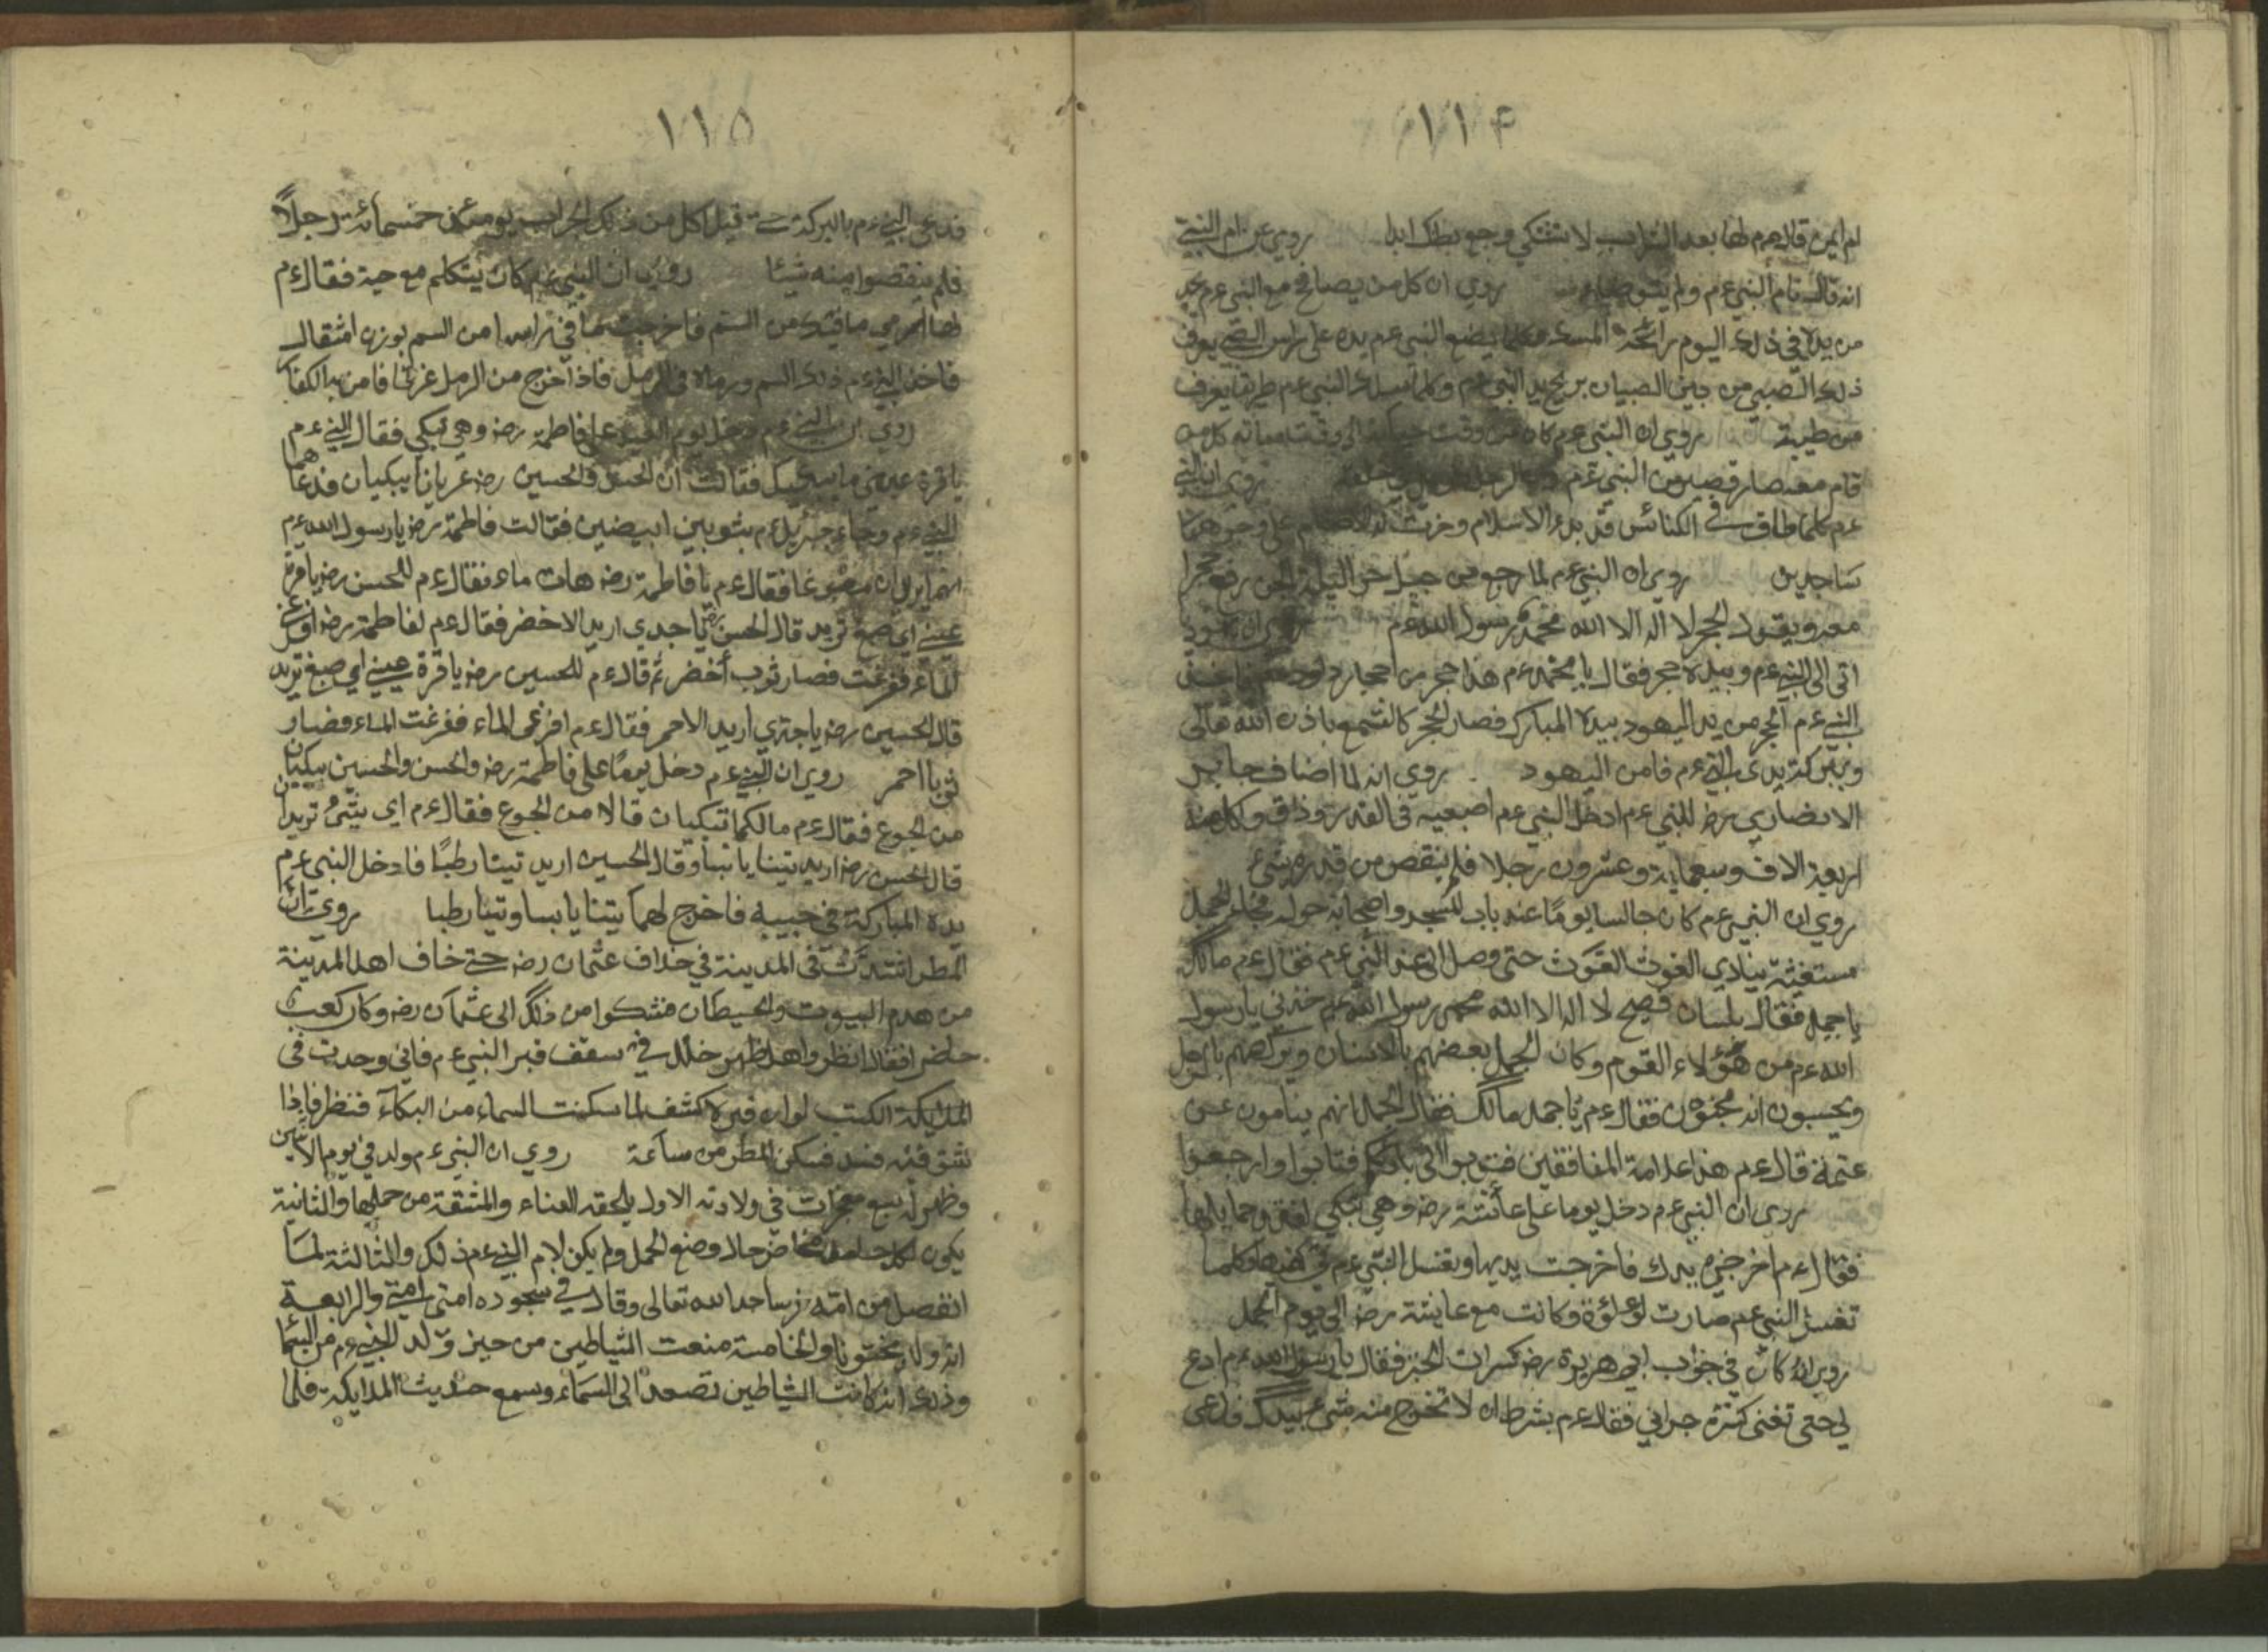 ١١٤
ام ايمن قال عم لها بعد الشراب لا تشتكي وجع بطنك ابدا روي عن ام النبي
انه قال نام النبي عم ولم روي ان كل من يصافح مع النبي عم يجد
من يده في ذلك اليوم رائحة المسك وكلما يضع النبي عم يده على راس الصبي يعرف
ذلك الصبي من بين الصبيان بريح يد النبي عم وكلما سلك النبي عم طريقا يعرف
من طيبه روي ان النبي عم كان من وقت الى وقت مماته كل من
قام معه صار قصيرا من النبي عم روي ان النبي
عم كلما طاف في الكنائس قبل بدء الاسلام وخرت له الاصنام على وجوههما
ساجدين روي ان النبي عم لما رجع من جبل حرا ليلة الجن رفع حجرا
معه ويقول الحجر لا اله الا الله محمد رسول الله عم روي ان يهودي
اتى الى النبي عم وبيده حجر فقال يا محمد عم هذا حجر من احجار داود
النبي عم الحجر من يد اليهود بيده المبارك فصار الحجر كالشمع باذن الله تعالى
وببركة يدى النبي عم فامن اليهود روي انه لما اضاف جابر
الانصاري رضه للنبي عم ادخل النبي عم اصبعيه في القدر وذاق وكل منه
اربعة الاف وسبعماية وعشرون رجلا فلم ينقص من قدره شئ
روي ان النبي عم كان جالسا يوما عند باب المسجد واصحابه حوله فجاء الجمل
مستغيثة ينادي الغوث الغوث حتى وصل الى عند النبي عم فقال عم مالك
يا جمل فقال بلسان فصيح لا اله الا الله محمد رسول الله عم خذني يا رسول
الله عم من هؤلاء القوم وكان الجمل بعضهم بالاسنان ويركضهم بالرجل
ويحسبون انه مجنون فقال عم يا جمل مالك فقال الجمل انهم ينامون عن
عتمة قال عم هذا علامة المنافقين فتوبوا الى بارئكم فتابوا وارجعوا
روي ان النبي عم دخل يوما على عائشة رضه وهي تبكي
فقال عم اخرجي يدك فاخرجت يديها ونفسل النبي عم في كفيها وكلما
تغسل النبي عم صارت لؤلؤة وكانت مع عايشة رضه الى يوم الجمل
روي انه كان في جراب ابي هريرة رضه كسرات الخبز فقال يا رسول الله عم ادع
لي حتى تغنى كثرة جرابي فقال عم بشرط ان لا تخرج منه شئ بيدك فدعى
١١٥
فدعى النبي عم بالبركة حتى قيل اكل من ذلك الجراب يومئذ خمسمائة رجلا
فلم ينقصوا منه شيئا روي ان النبي عم كان يتكلم مع حية فقال عم
لها ارمي ما فيك من السم فاخرجت ما في راسها من السم بوزن مثقال
فاخذ النبي عم ذلك السم ورماه في الرمل فاذا خرج من الرمل غزلا فامن به الكفار
روي ان النبي عم دخل يوم العيد على فاطمة رضه وهي تبكي فقال النبي عم
يا قرة عيني ما يبكيك فقالت ان الحسن والحسين رضه عريانا يبكيان فدعاهما
النبي عم وجاء جبرئيل عم بثوبين ابيضين فقالت فاطمة رضه يا رسول الله عم
انهما يريدان مصبوغا فقال عم يا فاطمة رضه هات ماء فقال عم للحسن رضه يا قرة
عيني اي صبغ تريد قال الحسن رضه يا جدي اريد الاخضر فقال عم لفاطمة رضه افرغي
الماء ففرغت فصار ثوب أخضر ثم قال عم للحسين رضه يا قرة عيني اي صبغ تريد
قال الحسين رضه يا جدي اريد الاحمر فقال عم افرغى الماء ففرغت الماء فصار
ثوبا احمر روي ان النبي عم دخل يوما على فاطمة رضه والحسن والحسين يبكيان
من الجوع فقال عم مالكما تبكيان قالا من الجوع فقال عم اى شئ تريدان
قال الحسن رضه اريد تينا يابسا وقال الحسين اريد تينا رطبا فادخل النبي عم
يده المباركة في جيبه فاخرج لهما تينا يابسا وتينا رطبا روي ان
المطر اشتدت في المدينة في خلاف عثمان رضه حتى خاف اهل المدينة
من هدم البيوت والحيطان فشكوا من ذلك الى عثمان رضه وكان كعب
حاضر افقال انظروا هل ظهر خلل في سقف قبر النبي عم فاني وجدت في
الملايكة الكتب لو ان قبره كشف لما سكنت السماء من البكاء فنظر فاذا
شق فيه فسد فسكن المطر من ساعة روي ان النبي عم ولد في يوم الاثنين
وظهر اربع معجزات في ولادته الاول لم يلحقه العناء والمشقة من حملها والثانية
يكون لكل حامل مخاض حال وضع الحمل ولم يكن لام النبي عم ذلك والثالثة لما
انفصل من امه خر ساجدا لله تعالى وقال في سجوده امتى امتى والرابعة
انه ولد مختونا والخامسة منعت الشياطين من حيز ولد النبي عم من السما
وذلك انه كانت الشياطين تصعد الى السماء وسمع حديث الملايكة فلما